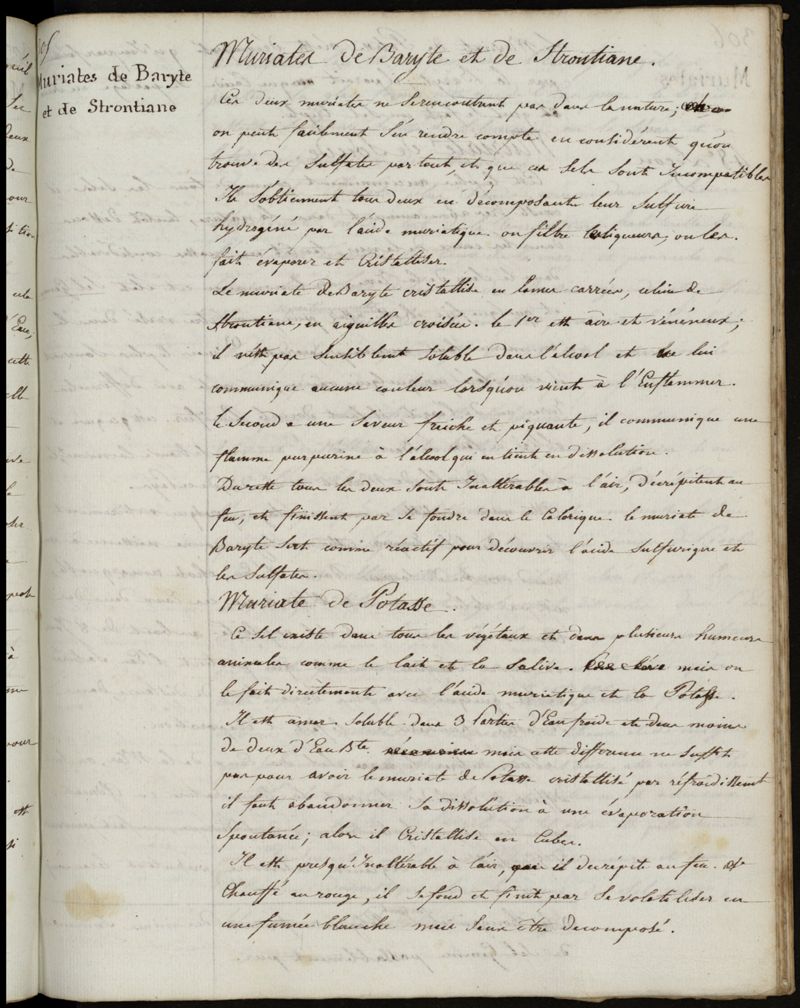 Muriates de Baryte
et de Strontiane
Muriates de Baryte et de Strontiane.
Ces deux muriates ne se rencontrent pas dans la nature;
on peut facilement s'en rendre compte en considérant qu'on
trouve des sulfates partout, et que ces sels sont Incompatibles
Ils s'obtiennent tous deux en décomposant leur sulfure
hydrogéné par l'acide muriatique. on filtre les liqueurs, on les
fait evaporer et Cristalliser.
Le muriate de Baryte cristallise en lames carrées, celui de
Strontiane, en aiguilles croisées. le 1er est acre et vénéneux;
il n'est pas sensiblement soluble dans l'alcool et ne lui
communique aucune couleur lorsqu'on vient à l'Enflammer.
le Second a une saveur fraiche et piquante, il communique une
flamme purpurine à l'alcool qui en tient en dissolution.
Du reste tous les deux sont Inaltérables à l'air, Décrépitent au
feu, et finissent par se fondre dans le Calorique. le muriate de
Baryte sert comme réactif pour découvrir l'acide sulfurique et
les sulfates.
Muriate de Potasse.
Ce sel existe dans tous les végétaux et dans plusieurs humeurs
animales comme le lait et la salive. mais on
le fait directement avec l'acide muriatique et la Potasse.
Il est amer. Soluble dans 3 Parties d'Eau froide et dans moins
de deux d'Eau Bte. mais cette différence ne suffit
pas pour avoir le muriate de Potasse cristallisé par réfroidissement
il faut abandonner sa dissolution à une évaporation
Spontanée; alors il Cristallise en Cubes.
Il est presqu'Inaltérable à l'air, il decrépite au feu. &
Chauffé au rouge, il se fond et finit par se volatiliser en
une fumée blanche mais sans être decomposé.